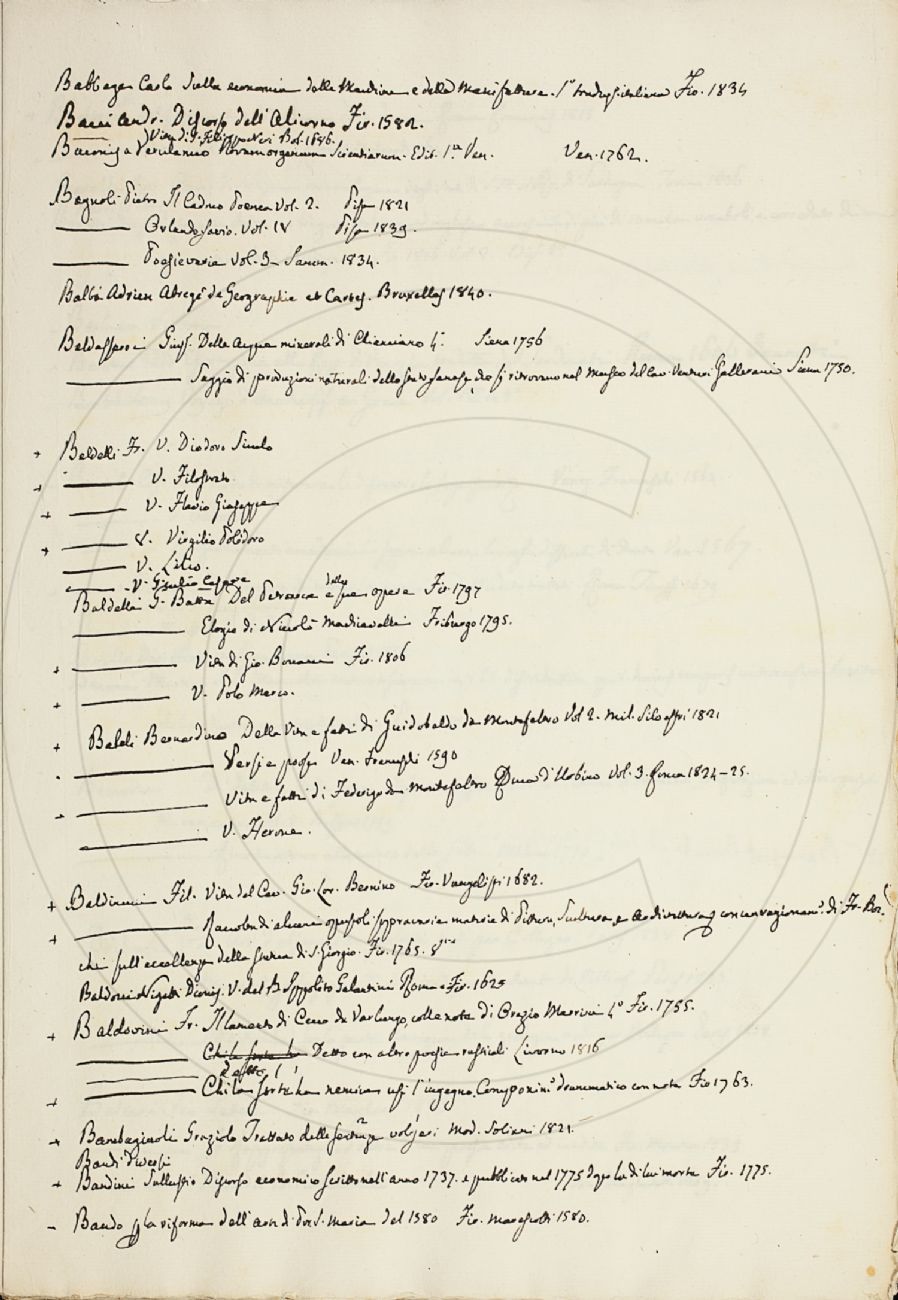 Babbage Carlo Sulla economia delle Macchine e delle Manifatture. 1ª traduz. italiana Fir. 1834
Bacci Andr. Discorso dell'Alicorno Fir. 1582.
Vita di S. Filippo Neri Bol. 1686.
Baconis a Verulamio Novum organum Scientiarum. Edit. 1.ª Ven. Ven. 1762.
Bagnoli Pietro Il Cadmo Poema Vol. 2. Pisa 1821
——— Orlando Savio. Vol. IV Pisa 1839.
——— Poesie varie Vol. 3 1834.
Balbi Adrien Abregé de Geographie et Cartes. Bruxelles 1840.
Baldasseroni Gius. Delle Acque minerali di Chianciano 4.° Siena 1756
——— Saggio di produzioni naturali dello Stato Sanese, che si ritrovano nel Museo del Cav. Venturi Gallerani Siena 1750.
+ Baldelli Fr. V. Diodoro Siculo
+ ——— V. Filostrato
+ ——— V. Flavio Giuseppe
+ ——— V. Virgilio Polidoro
——— V. Livio.
——— V. Giulio Cesare
Baldelli G. Batta Del Petrarca e delle sue opere Fir. 1797
——— Elogio di Niccolò Machiavelli Friburgo 1795.
+ ——— Vita di Gio. Boccacci Fir. 1806
+ ——— V. Polo Marco.
+ Baldi Bernardino Della Vita e fatti di Guidobaldo da Montefeltro Vol 2. Mil. Silvestri 1821
- ——— Versi e prose Ven. Franceschi 1590
- ——— Vita e fatti di Federigo da Montefeltro Duca d'Urbino Vol. 3. 1824-25.
——— V. Herone.
+ Baldinucci Fil. Vita del Cav. Gio. Lor. Bernino Fir. Vangelisti 1682.
+ ——— Raccolta di alcuni opuscoli sopra varie materie di Pittura, Scultura, e Architettura con un ragionam.° di Fr. Boc-
chi sull'eccellenza della statua di S. Giorgio. Fir. 1765. 8.vo
Baldocci Nigetti Dionig. V. del B. Ippolito Galantini Roma e Fir. 1625
+ Baldovini Fr. Il lamento di Cecco da Varlungo, colle note di Orazio Marrini 4.° Fir. 1755.
——— Chi la sorte ha Detto con altre poesie rusticali Livorno 1816
——— Detto
+ ——— Chi la sorte ha nemica usi l'ingegno. Componim.° drammatico con note Fir 1763.
+ Bambagiuoli Graziolo Trattato delle sentenze volgari Mod. Soliani 1821.
Bandi diversi
+ Bandini Sallustio Discorso economico scritto nell'anno 1737. e pubblicato nel 1775 dopo la di lui morte Fir. 1775.
- Bando p la riforma dell' di Por S. Maria del 1580 Fir. Marescotti 1580.